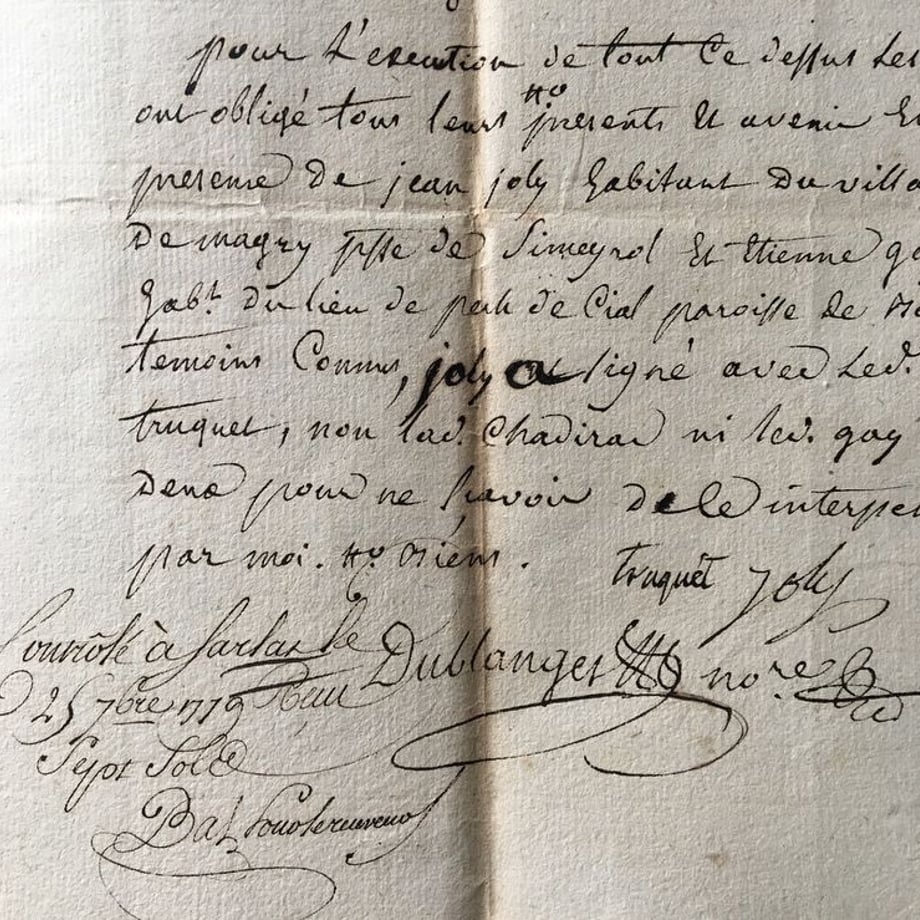 pour L'execution de tout Ce dessus Les
ont obligé tous leurs presents Et avenir En
presence de jean joly habitant Du villa
De magny psse de Simeyrol Et Etienne
habt. Du lieu de de Cial paroisse de
temoins Connus, joly a signé avec Led.
truquet, non lad. Chadirac ni led. gay
pour ne sçavoir de Ce interpel
par moi.
truquet Joly
Controlé à Sarlat le Dublanget nore
25 7bre 1779 Reçu
Sept Sols